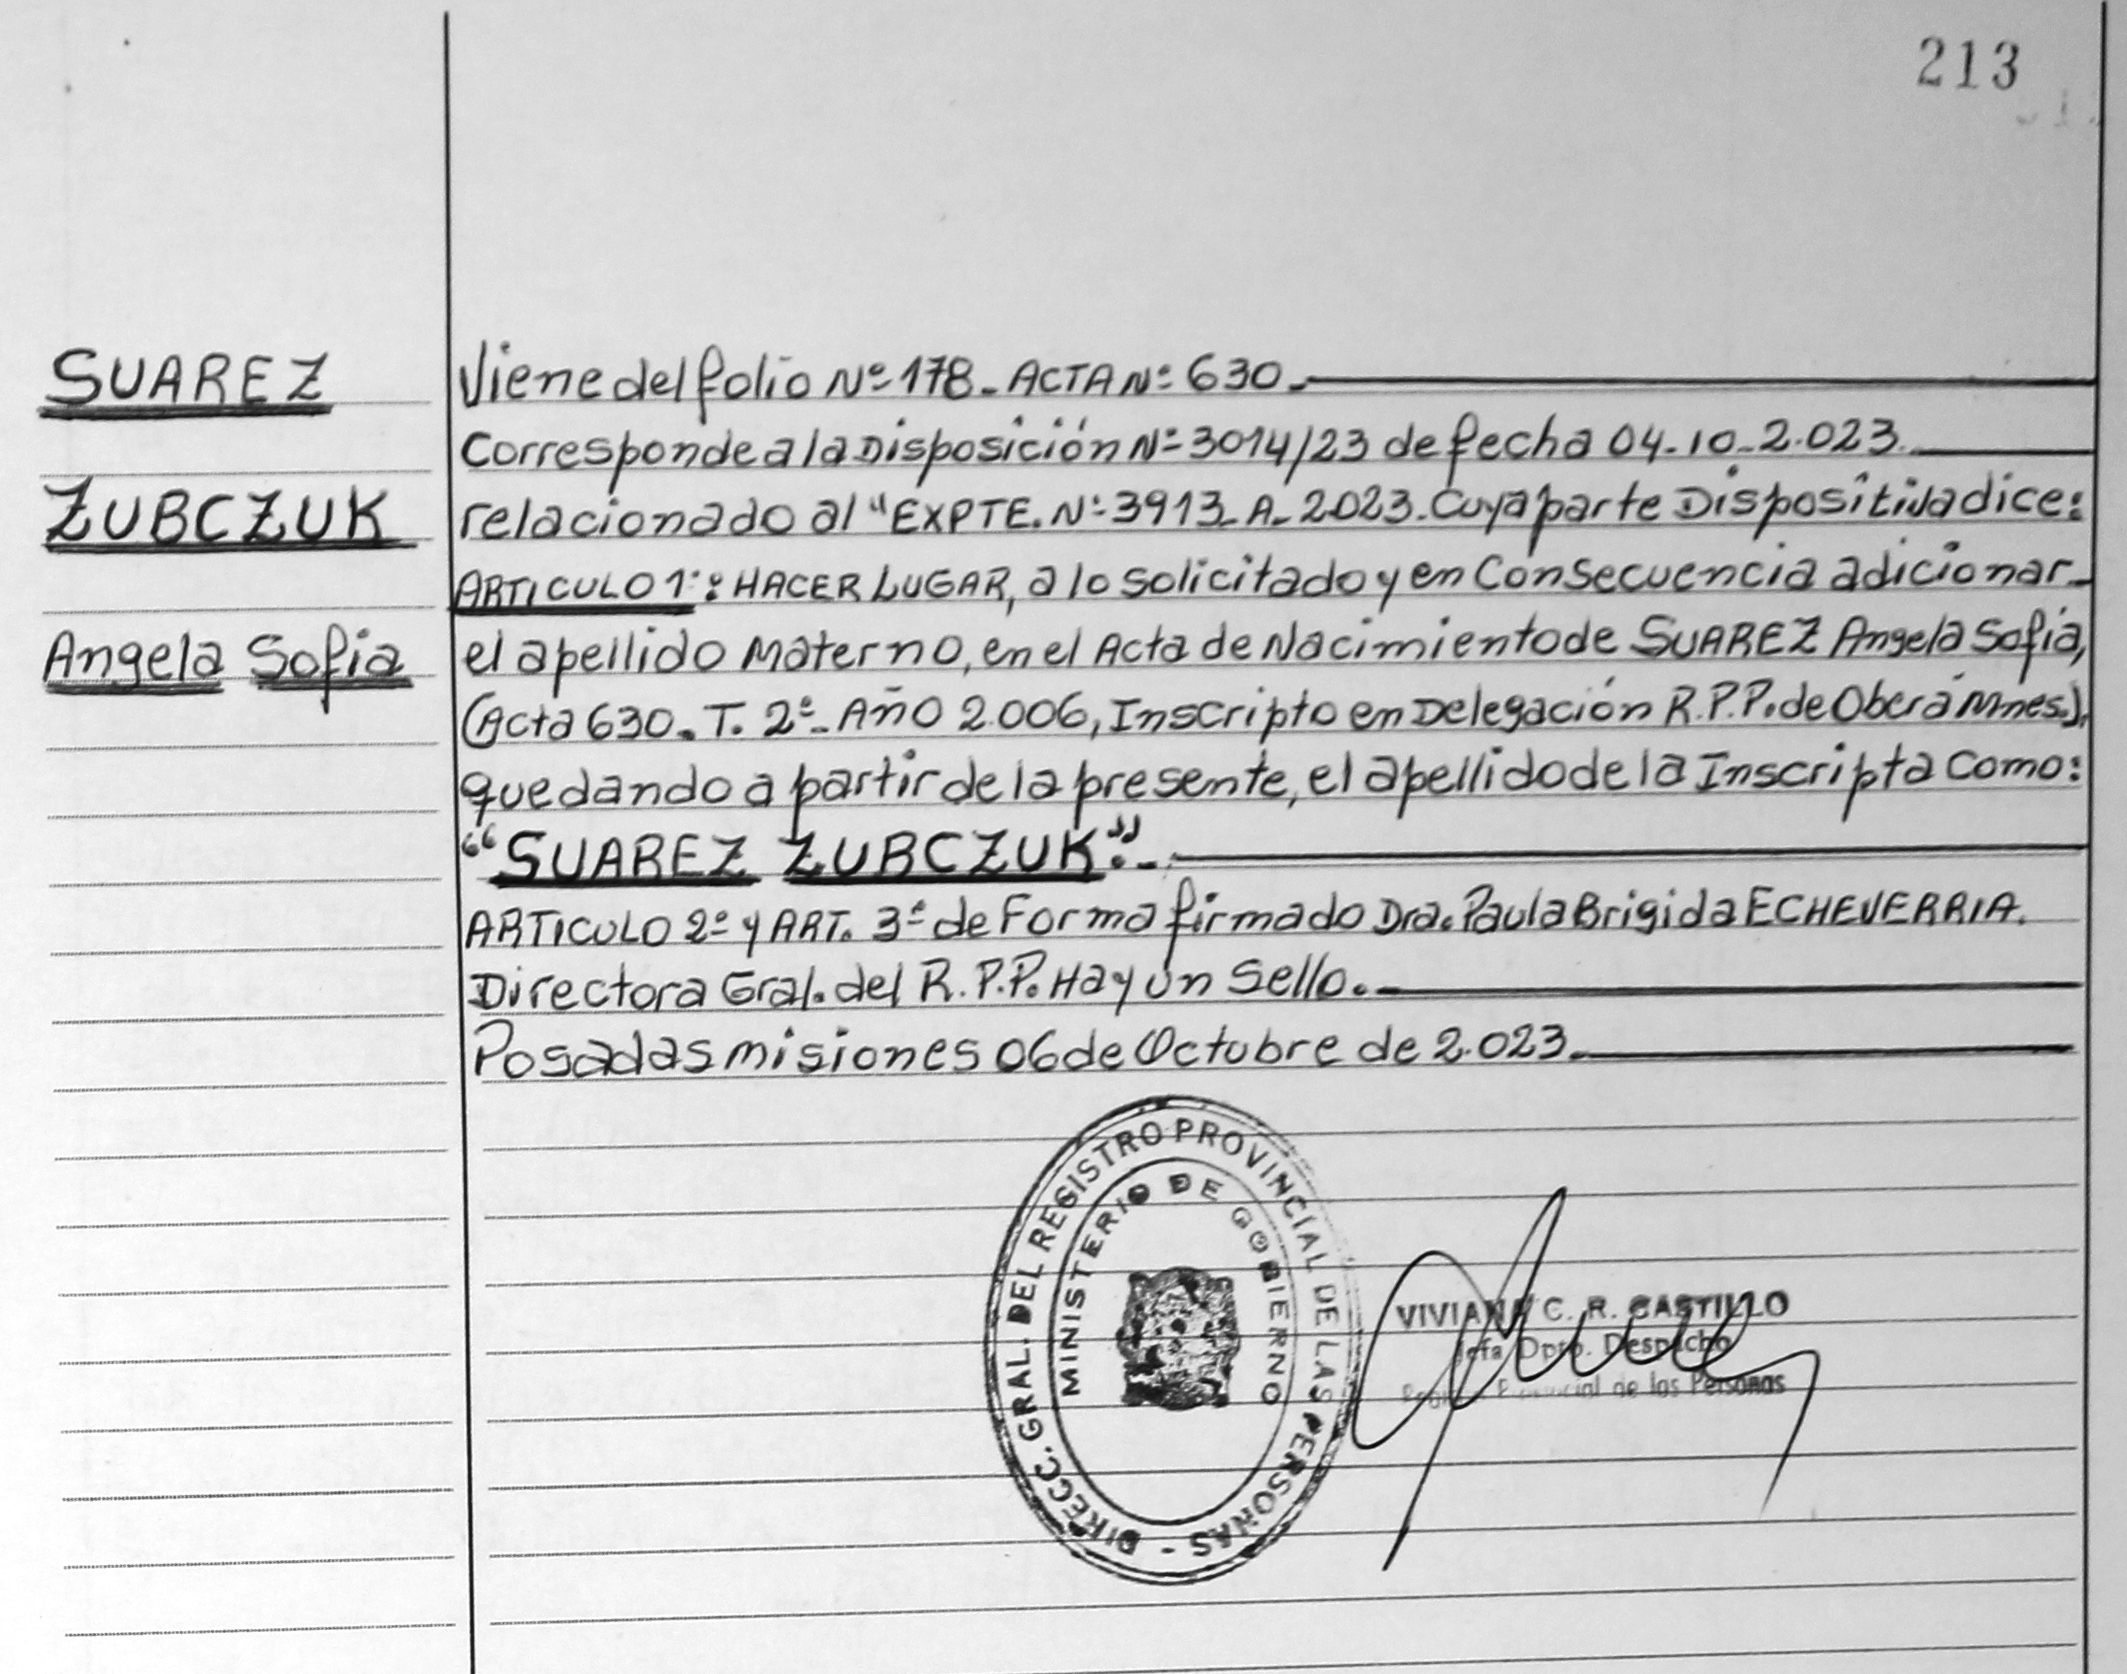 213
SUAREZ
ZUBCZUK
Angela Sofia
Viene del folio Nº 178_ ACTA Nº 630_
Corresponde a la Disposición Nº 3014/23 de fecha 04-10-2.023.
relacionado al "EXPTE. Nº 3913_A_2023. Cuya parte Dispositiva dice:
ARTICULO 1º: HACER LUGAR, a lo solicitado y en Consecuencia adicionar
el apellido Materno, en el Acta de Nacimiento de SUAREZ Angela Sofia,
(Acta 630_ T. 2º_ AÑO 2.006, Inscripto en Delegación R.P.P. de Oberá Mnes.),
quedando a partir de la presente, el apellido de la Inscripta Como:
"SUAREZ ZUBCZUK"._
ARTICULO 2º y ART. 3º de Forma firmado Dra. Paula Brigida ECHEVERRIA.
Directora Gral. del R.P.P. Hay un Sello._
Posadas misiones 06 de Octubre de 2.023_
DIRECC. GRAL. DEL REGISTRO PROVINCIAL DE LAS PERSONAS -
MINISTERIO DE GOBIERNO
VIVIANA C. R. CASTILLO
Jefa Dpto. Despacho
Provincial de las Personas